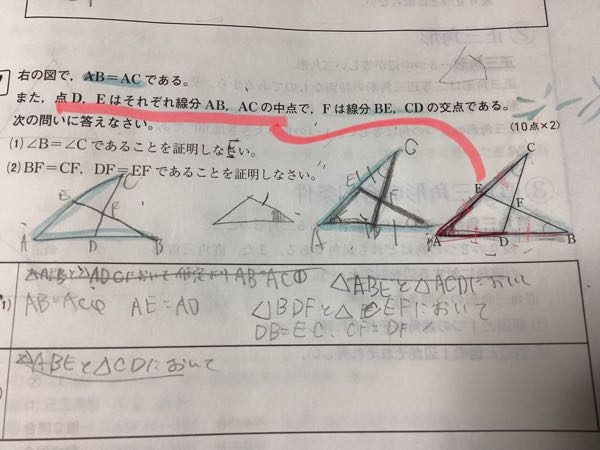 右の図で，AB＝ACである。
また，点D，Eはそれぞれ線分AB，ACの中点で，Fは線分BE，CDの交点である。
次の問いに答えなさい。
〈10点×2〉
(1) ∠B＝∠Cであることを証明しなさい。
(2) BF＝CF，DF＝EFであることを証明しなさい。
A
E
C
F
D
B
A
E
C
A
E
C
F
D
B
1)
において仮定より AB=AC①
△ABEと△ACDにおいて
AB=AC① AE=AD
△BDFと
EFにおいて
DB=EC、CF=DF
ABEと△CDにおいて